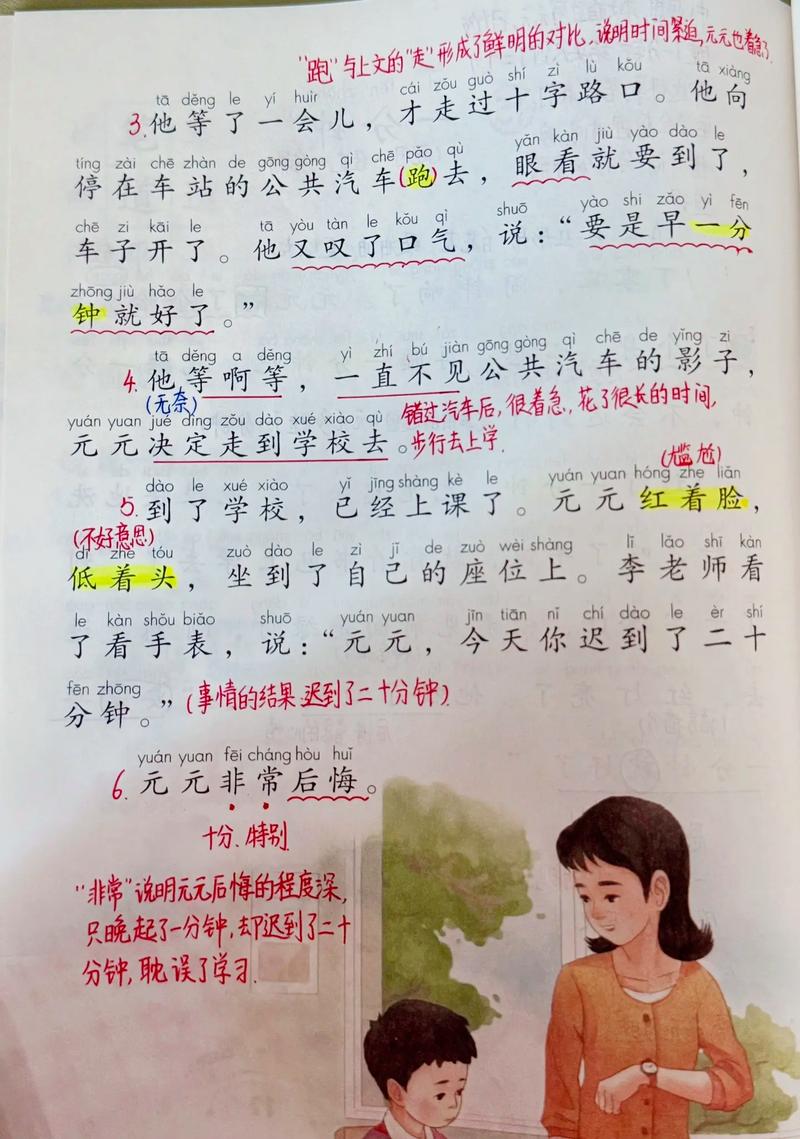 "跑"与上文的"走"形成了鲜明的对比,说明时间紧迫,元元也着急了.
tā děng le yí huìr cái zǒu guò shí zì lù kǒu tā xiàng
3.他等了一会儿，才走过十字路口。他向
tíng zài chē zhàn de gōng gòng qì chē pǎo qù yǎn kàn jiù yào dào le
停在车站的公共汽车(跑)去，眼看就要到了，
chē zi kāi le tā yòu tàn le kǒu qì shuō yào shi zǎo yì fēn
车子开了。他又叹了口气，说：“要是早一分
zhōng jiù hǎo le
钟就好了。”
tā děng a děng yì zhí bú jiàn gōng gòng qì chē de yǐng zi
4.他等啊等，一直不见公共汽车的影子，
(无奈)
yuán yuan jué dìng zǒu dào xué xiào qù
元元决定走到学校去。
错过汽车后,很着急,花了很长的时间,
步行去上学.
(尴尬)
dào le xué xiào yǐ jīng shàng kè le yuán yuan hóng zhe liǎn
5.到了学校，已经上课了。元元红着脸，
(不好意思)
dī zhe tóu zuò dào le zì jǐ de zuò wèi shàng lǐ lǎo shī kàn
低着头，坐到了自己的座位上。李老师看
le kàn shǒu biǎo shuō yuán yuan jīn tiān nǐ chí dào le èr shí
了看手表，说：“元元，今天你迟到了二十
fēn zhōng
分钟。”(事情的结果.迟到了二十分钟)
yuán yuan fēi cháng hòu huǐ
6.元元非常后悔。
十分.特别.
"非常"说明元元后悔的程度深,
只晚起了一分钟,却迟到了二十
分钟,耽误了学习.